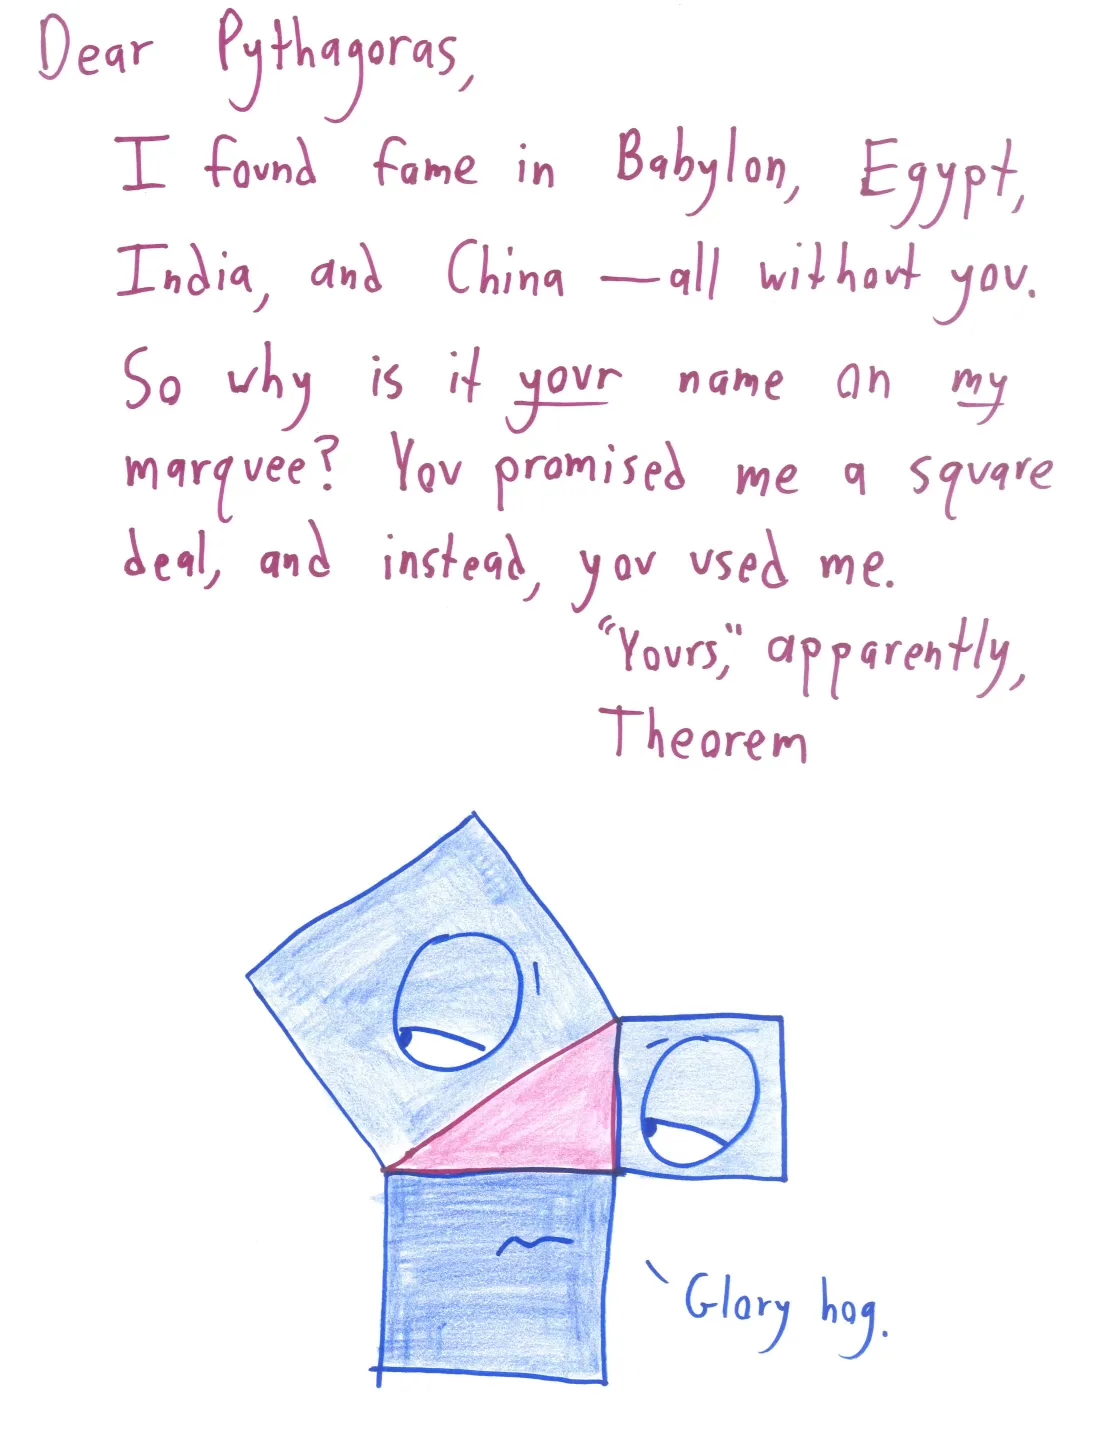 Dear Pythagoras,
I found fame in Babylon, Egypt,
India, and China — all without you.
So why is it your name on my
marquee? You promised me a square
deal, and instead, you used me.
"Yours," apparently,
Theorem
Glory hog.